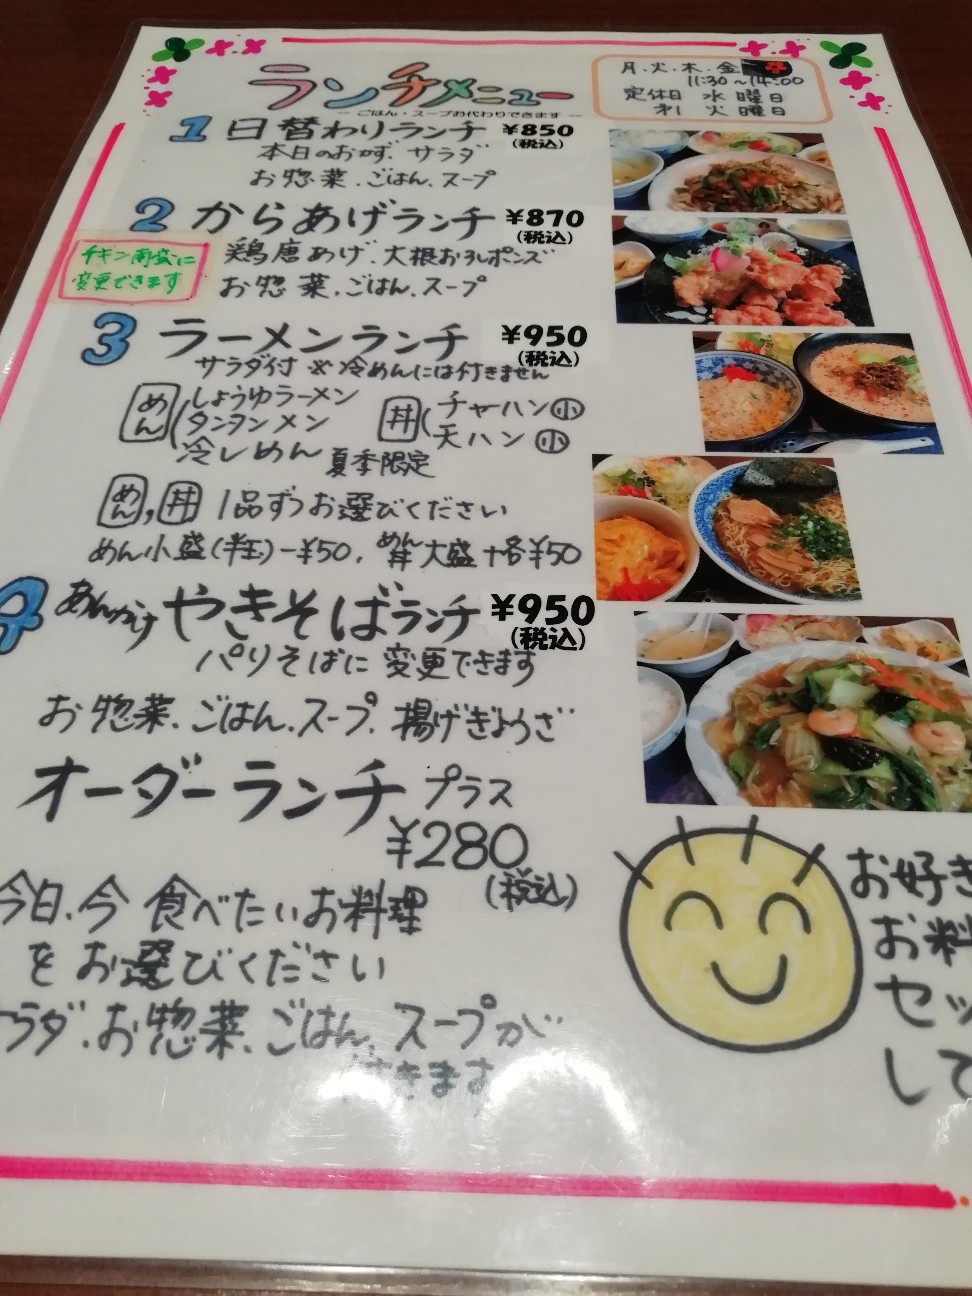 ランチメニュー
— ごはん・スープお代わりできます —
月.火.木.金
11:30~14:00
定休日 水曜日
火曜日
1 日替わりランチ ¥850
(税込)
本日のおかず、サラダ
お惣菜、ごはん、スープ
2 からあげランチ ¥870
(税込)
チキン南蛮に
変更できます
鶏唐あげ、大根おろしポンズ
お惣菜、ごはん、スープ
3 ラーメンランチ ¥950
(税込)
サラダ付 ※冷めんには付きません
めん しょうゆラーメン
タンタンメン
冷しめん 夏季限定
丼 チャーハン小
天ハン 小
めん, 丼 1品ずつお選びください
めん小盛(半玉)-¥50, めん丼 大盛+各¥50
4 あんかけやきそばランチ ¥950
(税込)
パリそばに変更できます
お惣菜、ごはん、スープ、揚げぎょうざ
オーダーランチ プラス
¥280
(税込)
今日、今 食べたいお料理
をお選びください
サラダ、お惣菜、ごはん、スープが
つきます
お好き
お料
セッ
して